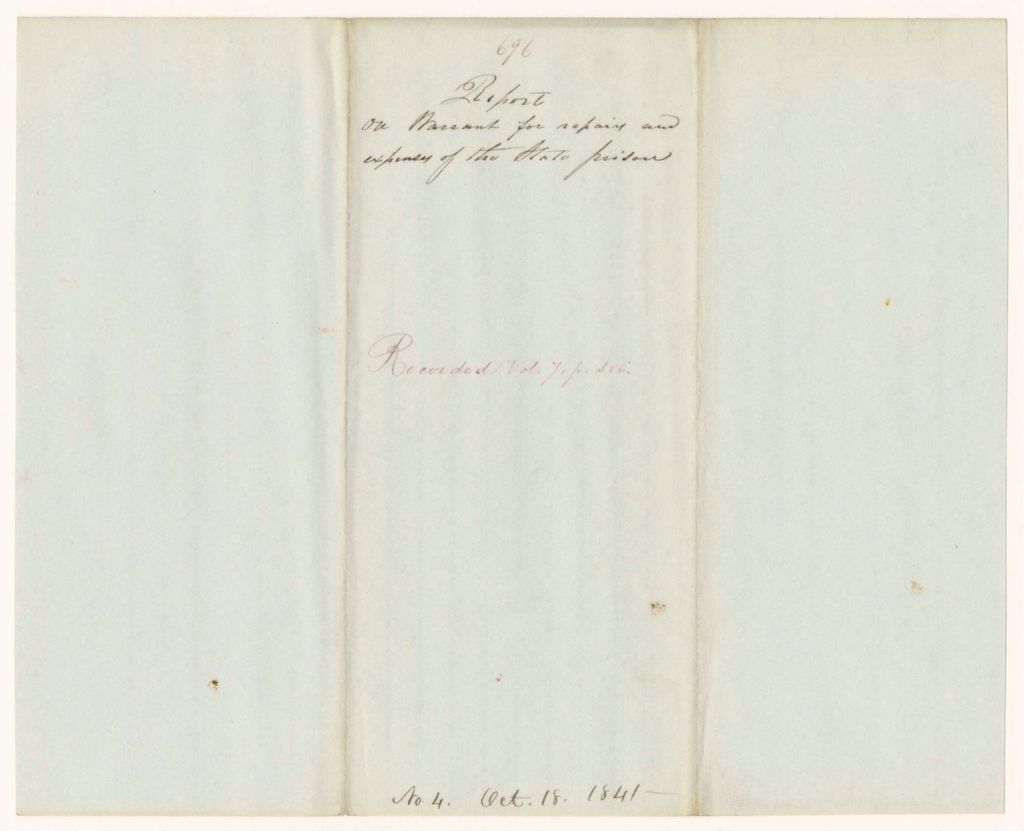 696
Report
on Warrant for repairs and
expenses of the State prison
Recorded Vol. 7, p. 386.
No. 4. Oct. 18. 1841